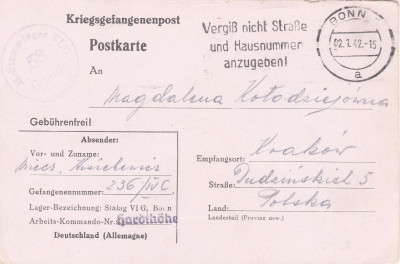 Kriegsgefangenenpost
Postkarte
Vergiß nicht Straße
und Hausnummer
anzugeben!
BONN
02.1.42.-15
a
An
Magdalena Kołodziejówna
Gebührenfrei!
Absender:
Vor- und Zuname:
Miecz.
Gefangenennummer: 236/IVC
Lager-Bezeichnung: Stalag VI G, Bonn
Arbeits-Kommando-Nr. Hardthöhe
Deutschland (Allemagne)
Empfangsort: Kraków
Straße: 5
Land: Polska
Landesteil (Provinz usw.)